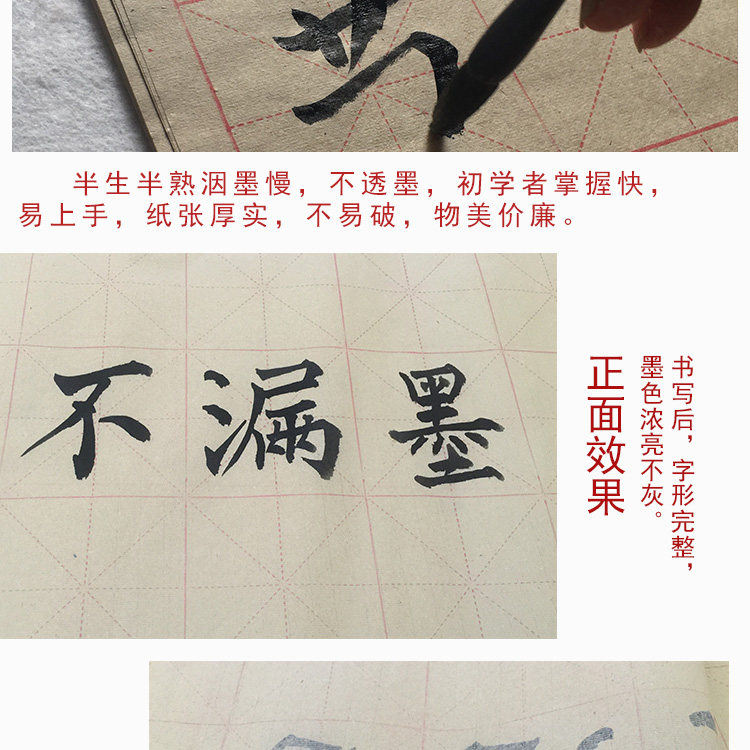 半生半熟洇墨慢，不透墨，初学者掌握快，
易上手，纸张厚实，不易破，物美价廉。
不漏墨
书写后，字形完整，
墨色浓亮不灰。
正面效果